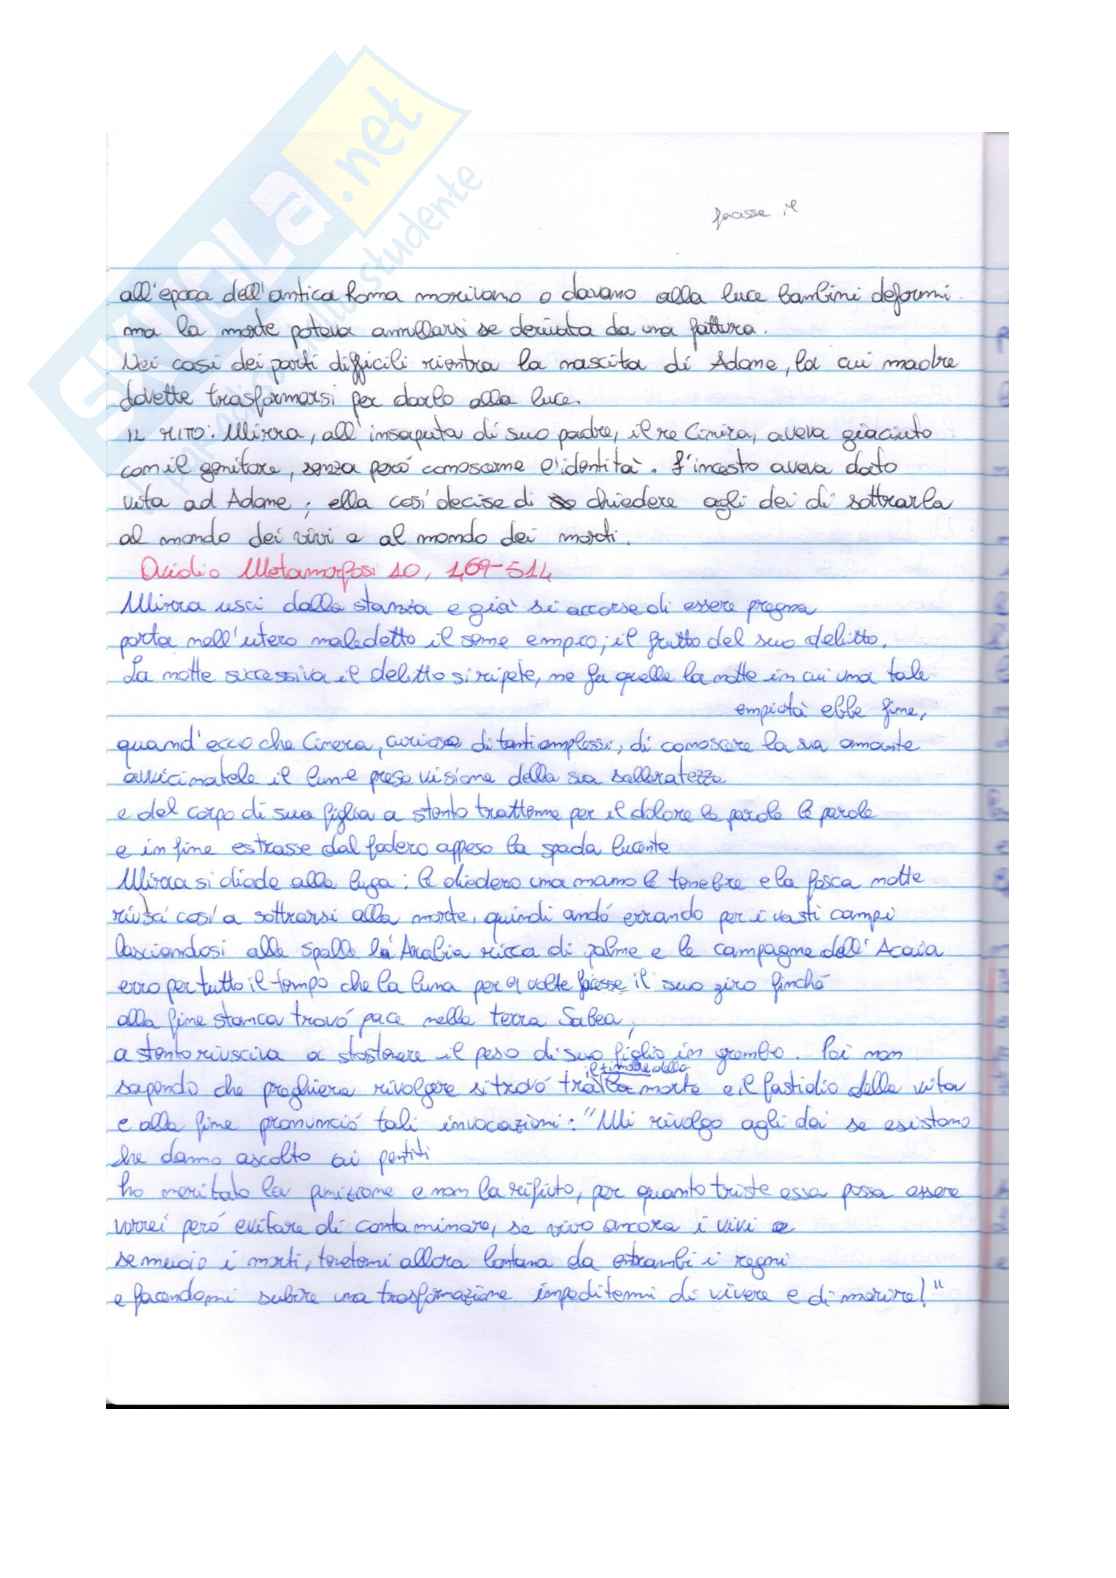 SKUOLA.net
facesse il
all'epoca dell'antica Roma morivano o davano alla luce bambini deformi
ma la morte poteva annullarsi se derivata da una fattura.
Nei casi dei parti difficili rientra la nascita di Adone, la cui madre
dovette trasformarsi per darlo alla luce.
IL MITO: Mirra, all'insaputa di suo padre, il re Cinira, aveva giaciuto
con il genitore, senza però conoscerne l'identità. L'incesto aveva dato
vita ad Adone; ella così decise di chiedere agli dei di sottrarla
al mondo dei vivi e al mondo dei morti.
Ovidio Metamorfosi 10, 469-514
Mirra uscì dalla stanza e già si accorse di essere pregna
porta nell'utero maledetto il seme empio; il frutto del suo delitto.
La notte successiva il delitto si ripete, ne fu quella la notte in cui una tale
empietà ebbe fine,
quand'ecco che Cinera, curioso di tanti amplessi, di conoscere la sua amante
avvicinatele il lume prese visione della sua scelleratezza
e del corpo di sua figlia a stento trattenne per il dolore le parole le parole
e infine estrasse dal fodero appeso la spada lucente
Mirra si diede alla fuga: le diedero una mano le tenebre e la fosca notte
riuscì così a sottrarsi alla morte, quindi andò errando per i vasti campi
lasciandosi alle spalle la Arabia ricca di palme e le campagne dell'Acaia
errò per tutto il tempo che la luna per 9 volte facesse il suo giro finché
alla fine stanca trovò pace nella terra Sabea,
a stento riusciva a sostenere il peso di suo figlio in grembo. Poi non
sapendo che preghiera rivolgere si trovò tra il timore della morte e il fastidio della vita
e alla fine pronunciò tali invocazioni: "Mi rivolgo agli dei se esistono
che danno ascolto ai pentiti
ho meritato la punizione e non la rifiuto, per quanto triste essa possa essere
vorrei però evitare di contaminare, se vivo ancora i vivi e
se muoio i morti, tenetemi allora lontana da entrambi i regni
e facendomi subire una trasformazione impeditemi di vivere e di morire!"